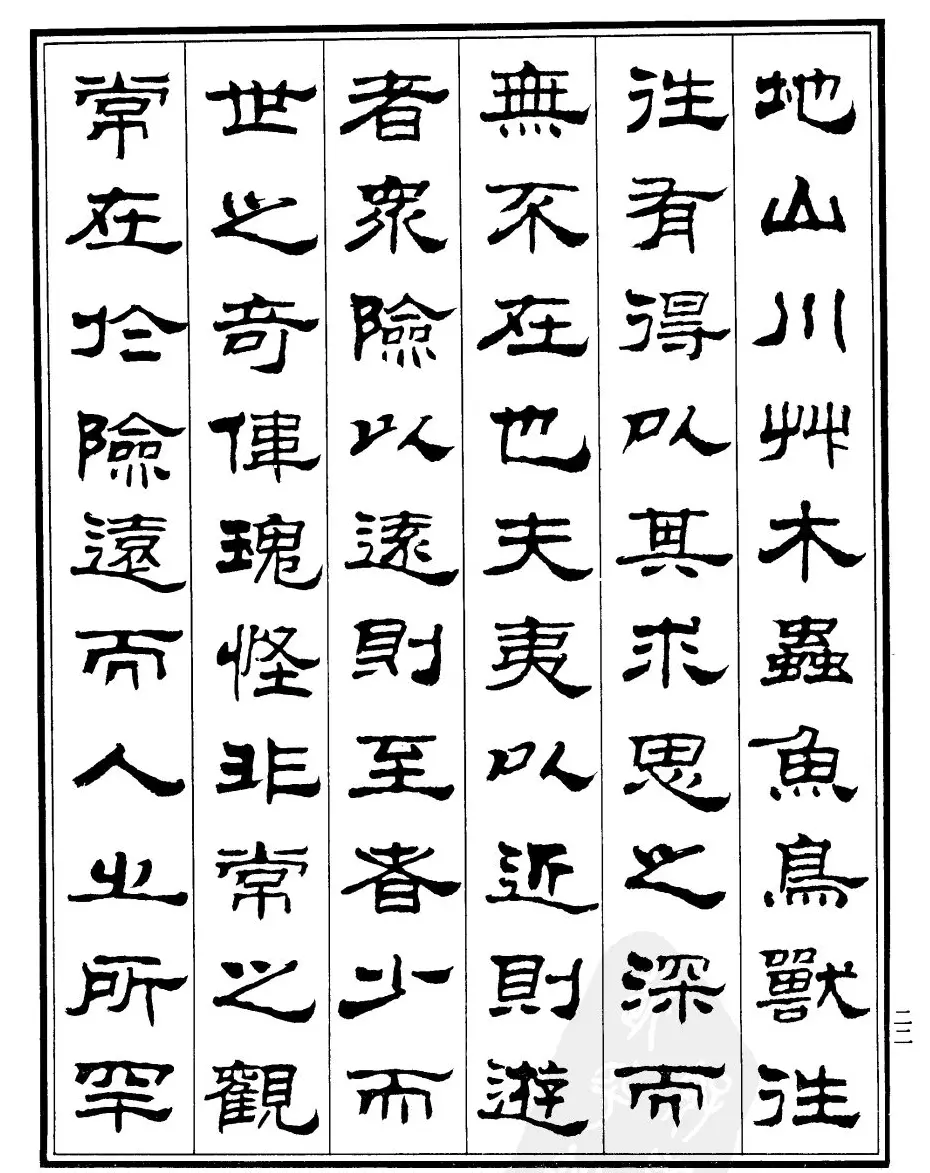 地山川艸木蟲魚鳥獸往
往有得以其求思之深而
無不在也夫夷以近則遊
者眾險以遠則至者少而
世之奇偉瑰怪非常之觀
常在於險遠而人之所罕
二二